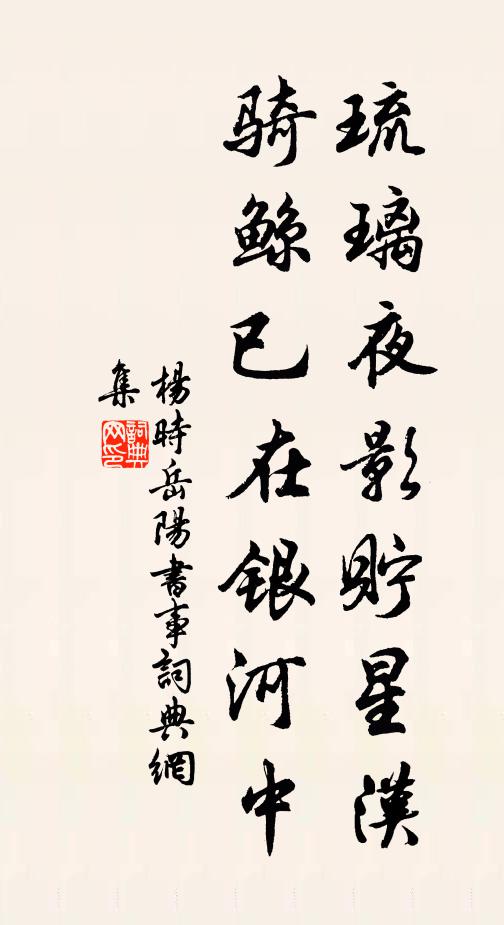 琉璃夜影貯星漢
騎鯨已在銀河中
楊時岳陽書事詞典網
集
詞典
网印